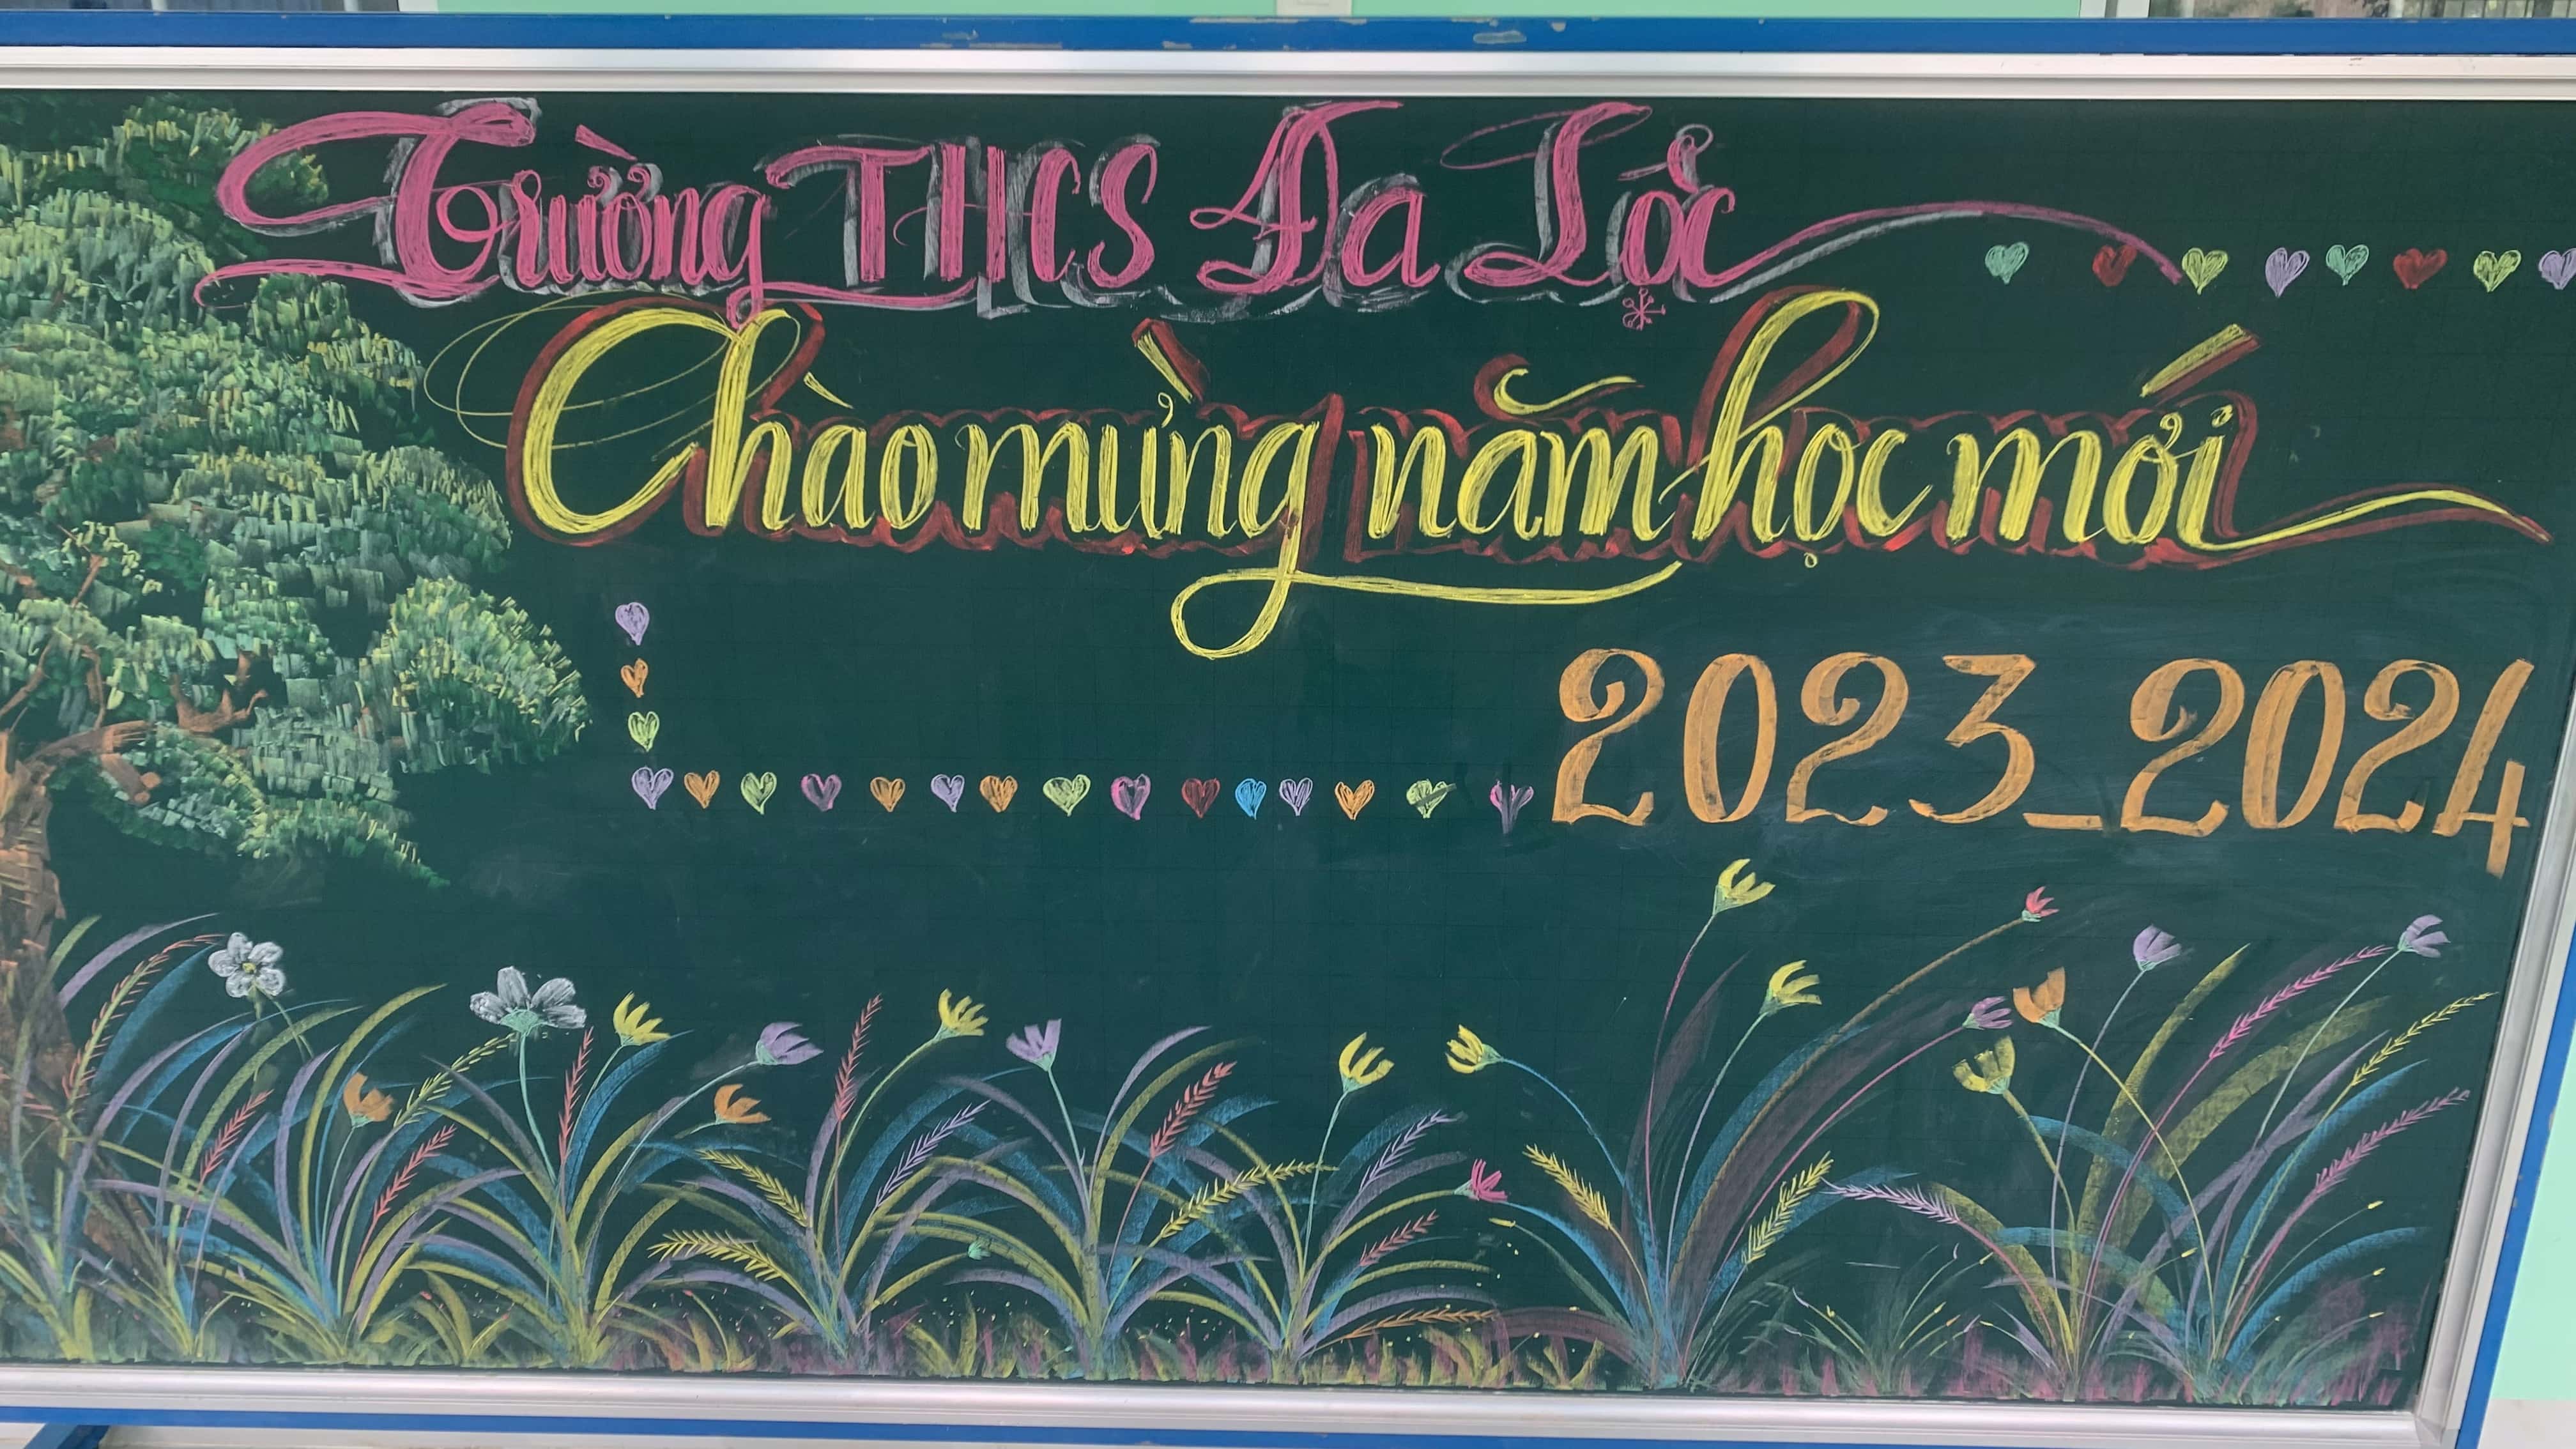 Trường THCS Đa Lộc
Chào mừng năm học mới
2023_2024